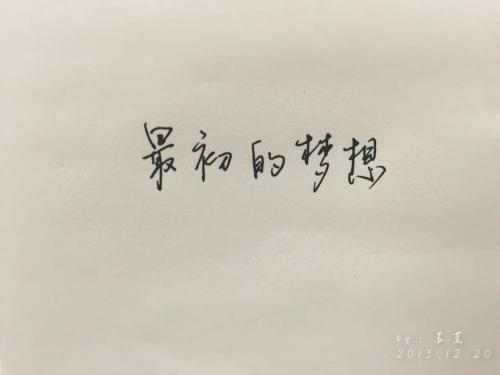 最初的梦想
by:苏荒
2015.12.20